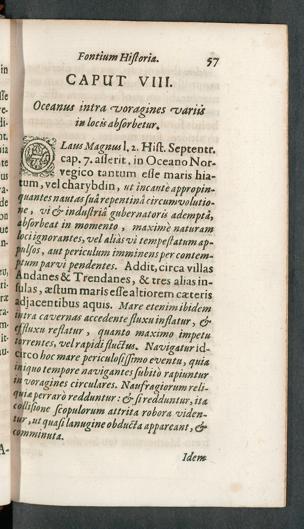 Fontium Historia. 57
CAPUT VIII.
Oceanus intra voragines variis
in locis absorbetur.
OLaus Magnus l. 2. Hist. Septentr.
cap. 7. asserit, in Oceano Nor-
vegico tantum esse maris hia-
tum, vel charybdin, ut incautè appropin-
quantes nautas suâ repentinâ circumvolutio-
ne, vi & industriâ gubernatoris ademptâ,
absorbeat in momento, maximè naturam
loci ignorantes, vel aliàs vi tempestatum ap-
pulsos, aut periculum imminens per contem-
ptum parvi pendentes. Addit, circa villas
Andanes & Trendanes, & tres alias in-
sulas, æstum maris esse altiorem cæteris
adjacentibus aquis. Mare etenim ibidem
intra cavernas accedente fluxu inflatur, &
effluxu reflatur, quanto maximo impetu
torrentes, vel rapidi fluctus. Navigatur id-
circo hoc mare periculosissimo eventu, quia
iniquo tempore navigantes subitò rapiuntur
in voragines circulares. Naufragiorum reli-
quia perrarò redduntur: & si redduntur, ita
collisione scopulorum attrita robora viden-
tur, ut quasi lanugine obducta appareant, &
comminuta.
Idem